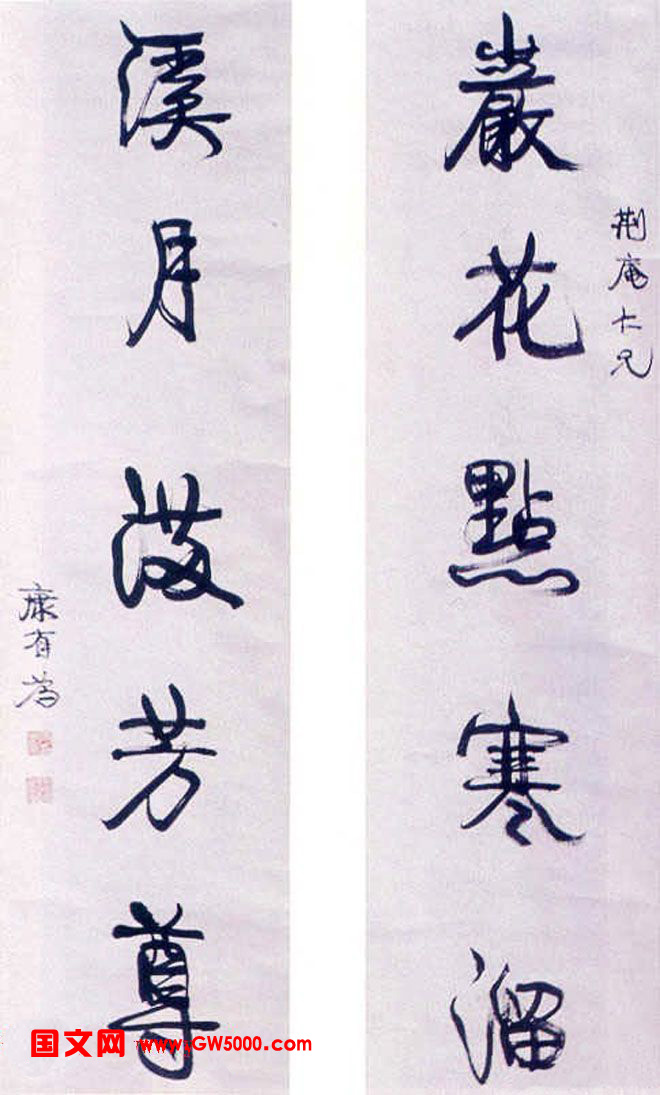 荆庵仁兄
巖花點寒溜
溪月滿芳尊
康有為
国文网 www.yGW5000.com